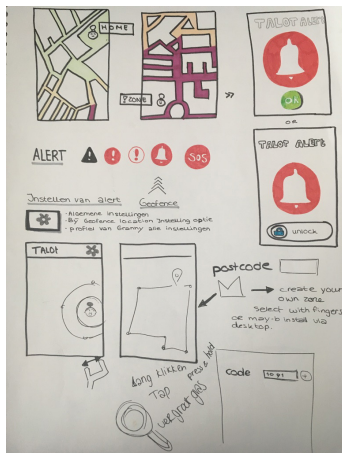 HOME
ZONE
TALOT ALERT
OK
OR
TALOT ALERT
unlock
ALERT
SOS
Instellen van alert
Geofence
· Algemene instellingen
· Bij Geofence location instelling optie
· profiel van Granny alle instellingen
TALOT
postcode
create your
own zone
Select with fingers
or may-b install via
desktop.
Lang klikken
press & hold
TAP
vergroot glas
code